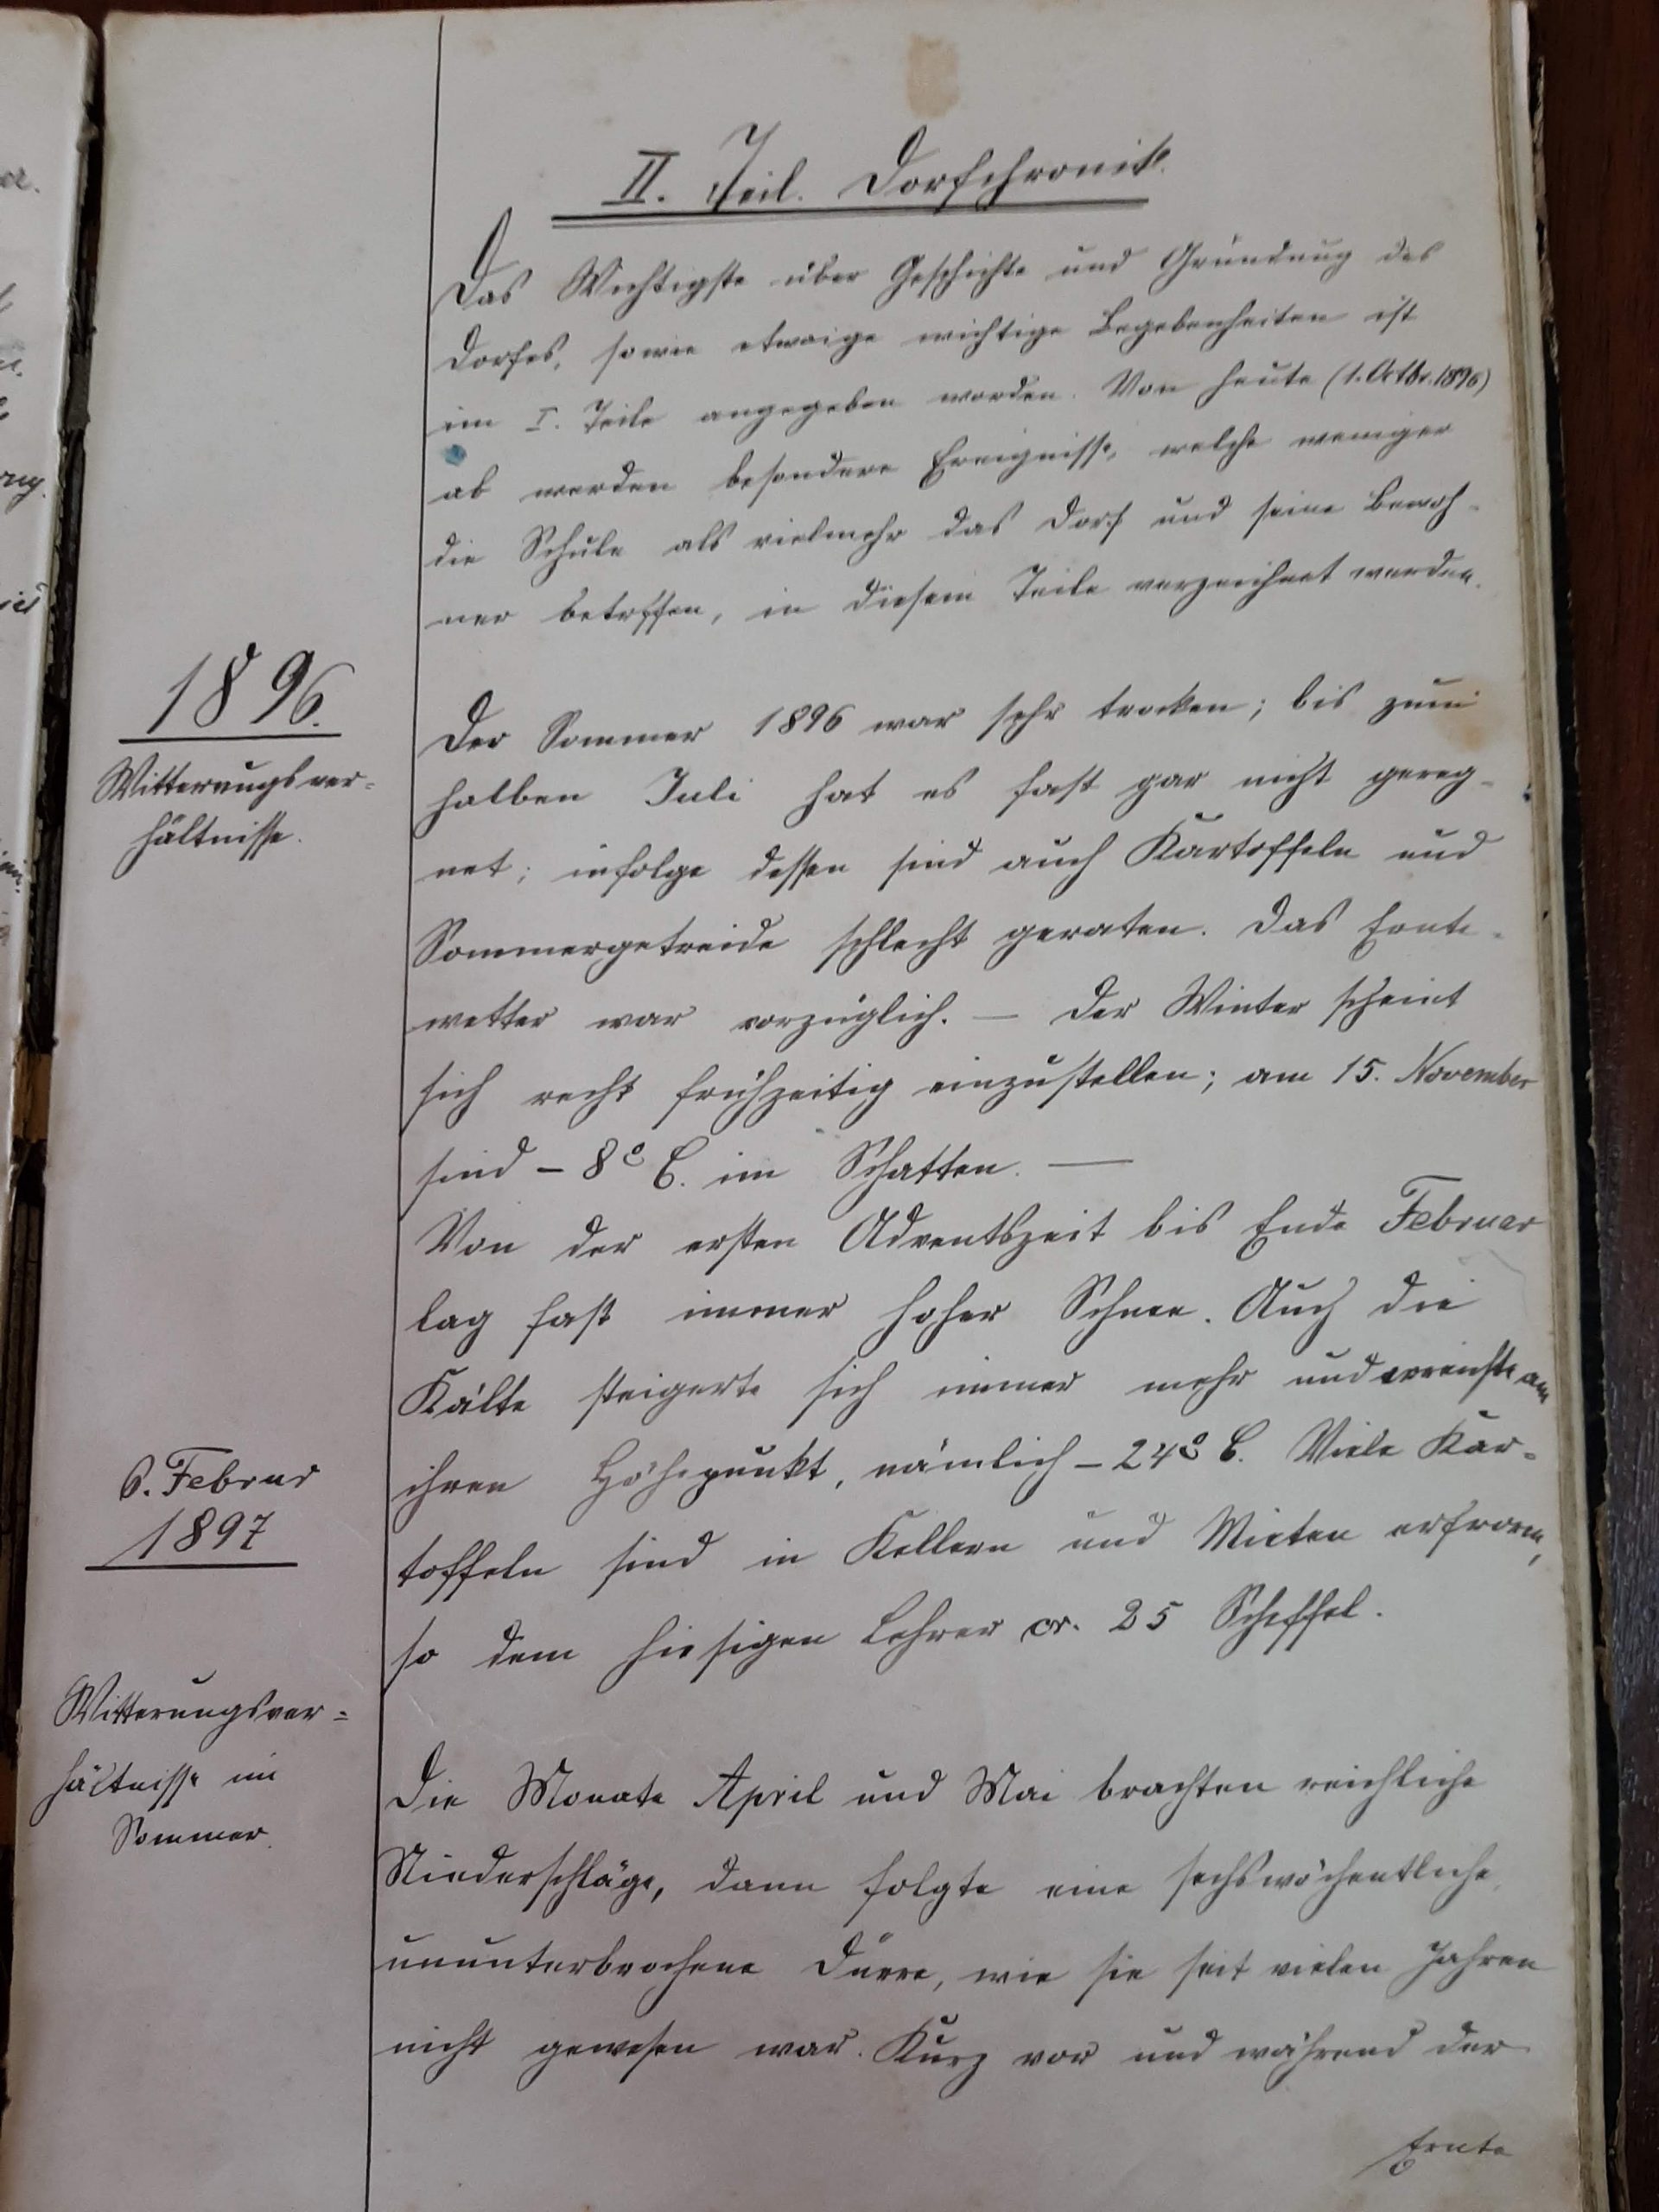 II. Teil. Dorfchronik.
Das Wichtigste über Geschichte und Gründung des
Dorfes, sowie etwaige wichtige Begebenheiten ist
im I. Teile angegeben worden. Von heute (1. Octbr. 1896)
ab werden besondere Ereignisse, welche weniger
die Schule als vielmehr das Dorf und seine Bewoh-
ner betreffen, in diesem Teile verzeichnet werden.
1896.
Witterungsver-
hältnisse.
Der Sommer 1896 war sehr trocken; bis zum
halben Juli hat es fast gar nicht gereg-
net; infolge dessen sind auch Kartoffeln und
Sommergetreide schlecht geraten. Das Ernte-
wetter war vorzüglich. — Der Winter scheint
sich recht frühzeitig einzustellen; am 15. November
sind – 8° C. im Schatten. —
Von der ersten Adventszeit bis Ende Februar
lag fast immer hoher Schnee. Auch die
Kälte steigerte sich immer mehr und erreichte am
6. Februar
1897
ihren Höhepunkt, nämlich – 24° C. Viele Kar-
toffeln sind in Kellern und Mieten erfroren,
so dem hiesigen Lehrer cr. 25 Scheffel.
Witterungsver-
hältnisse im
Sommer.
Die Monate April und Mai brachten reichliche
Niederschläge, dann folgte eine sechswöchentliche
ununterbrochene Dürre, wie sie seit vielen Jahren
nicht gewesen war. Kurz vor und während der
Ernte